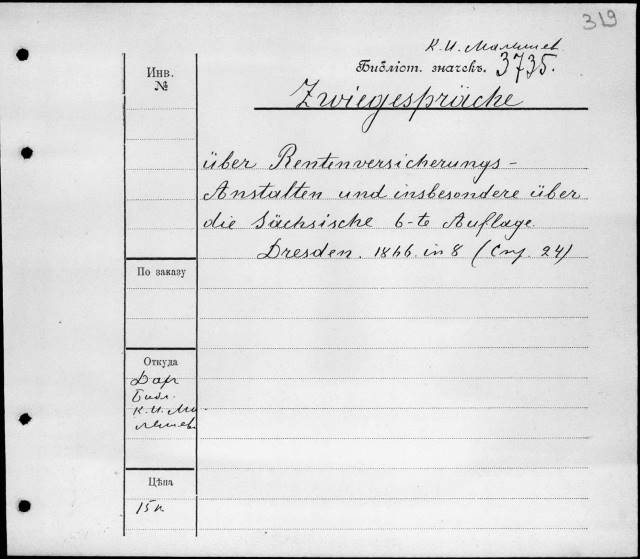 319
К. И. Малышев
Библіот. значекъ. 3735.
Инв.
№
Zwiegespräche
über Rentenversicherungs-
Anstalten und insbesondere über
die Sächsische 6-te Auflage.
Dresden. 1866. in 8 (Стр. 24)
По заказу
Откуда
Дар
Библ.
К. И. Ма
лышев.
Цѣна
15 к